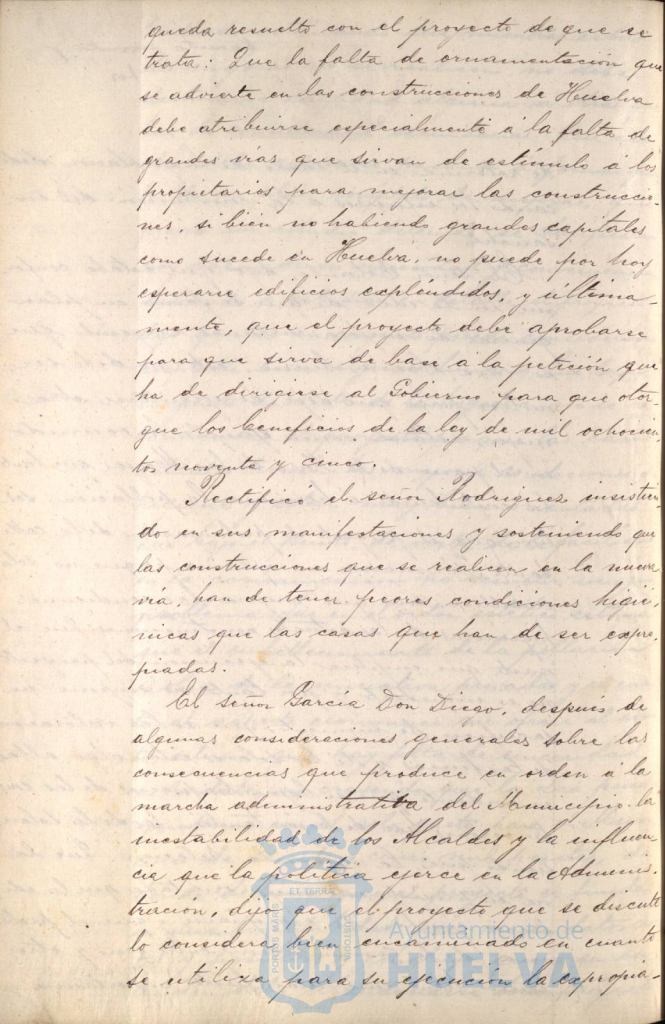 queda resuelto con el proyecto de que se
trata: Que la falta de ornamentación que
se advierte en las construcciones de Huelva
debe atribuirse especialmente á la falta de
grandes vías que sirvan de estímulo á los
propietarios para mejorar las construccio-
nes, si bien no habiendo grandes capitales
como sucede en Huelva, no puede por hoy
esperarse edificios expléndidos, y última-
mente, que el proyecto debe aprobarse
para que sirva de base á la petición que
ha de dirigirse al Gobierno para que otor
gue los beneficios de la ley de mil ochocien-
tos noventa y cinco.
Rectificó el señor Rodriguez insistien-
do en sus manifestaciones y sosteniendo que
las construcciones que se realicen en la nueva
vía, han de tener peores condiciones higié-
nicas que las casas que han de ser expro-
piadas.
El señor García Don Diego, después de
algunas consideraciones generales sobre las
consecuencias que produce en orden á la
marcha administrativa del Municipio la
inestabilidad de los Alcaldes y la influen-
cia que la política ejerce en la Adminis-
tración, dijo que el proyecto que se discute
lo considera bien encaminado en cuanto
se utiliza para su ejecución la expropia-
Ayuntamiento de
HUELVA
PORTUS MARIS ET TERRAE CUSTODIA